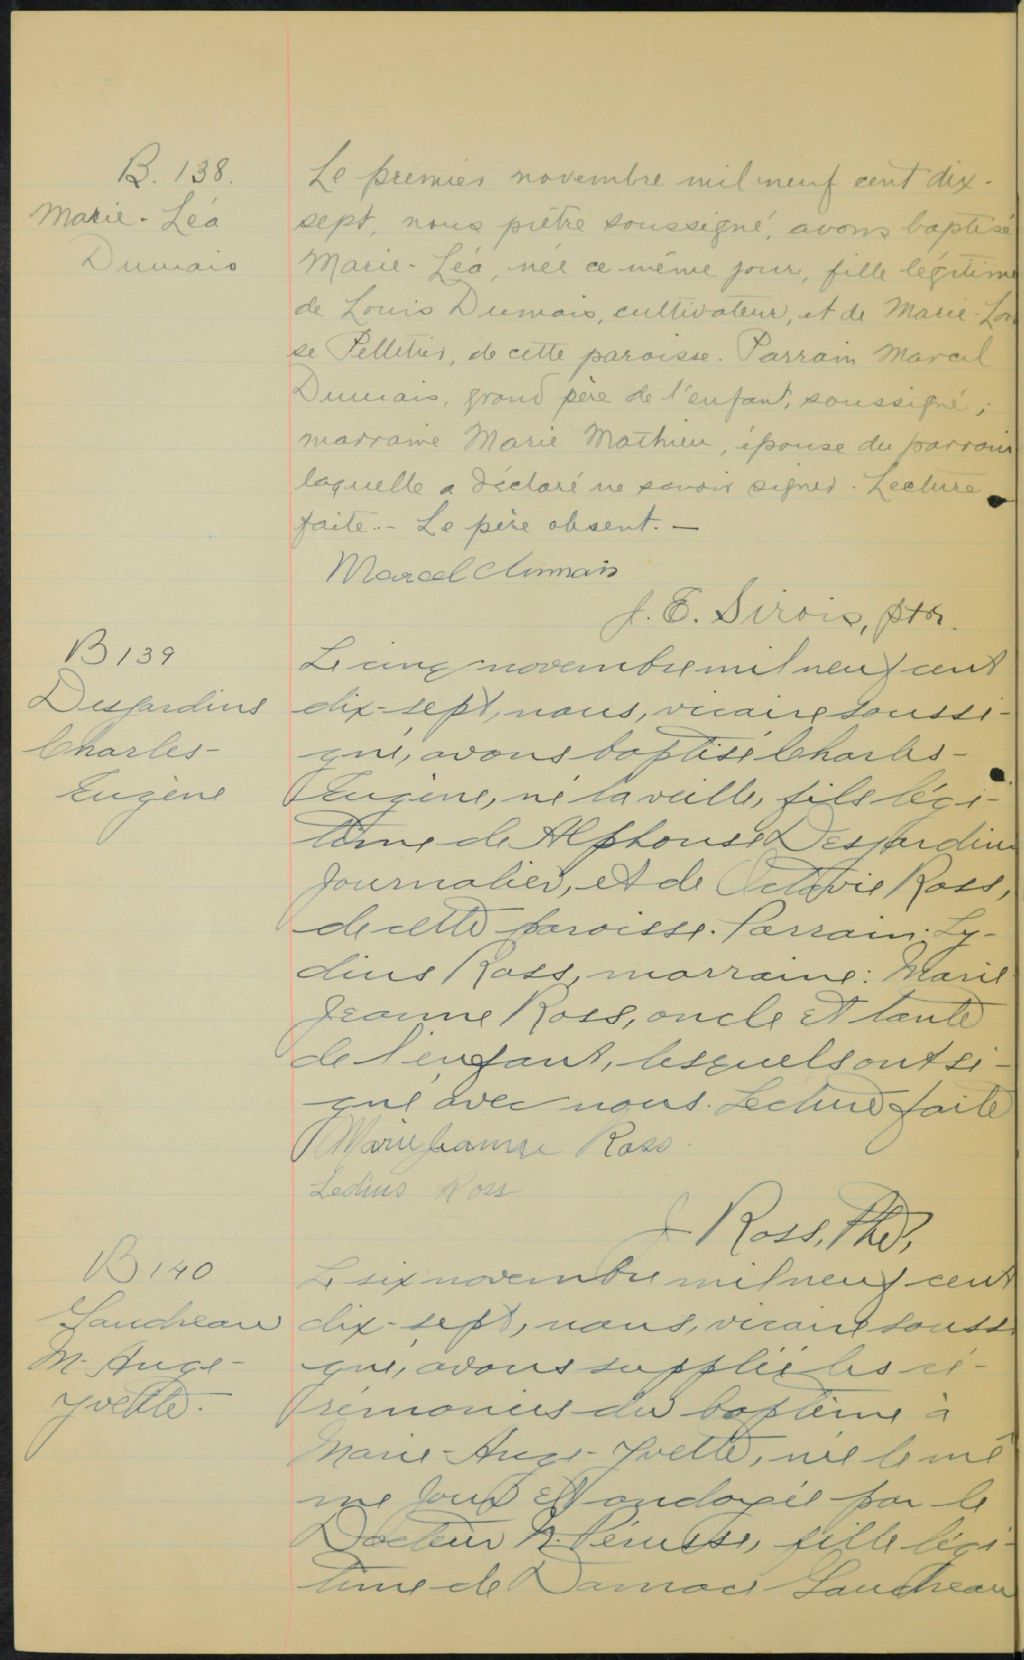 B. 138.
Marie-Léa
Dumais
Le premier novembre mil neuf cent dix-
sept, nous prêtre soussigné, avons baptisé
Marie-Léa, née ce même jour, fille légitime
de Louis Dumais, cultivateur, et de Marie-Loui
se Pelletier, de cette paroisse. Parrain Marcel
Dumais, grand père de l'enfant, soussigné;
marraine Marie Mathieu, épouse du parrain
laquelle a déclaré ne savoir signer. Lecture
faite. - Le père absent. -
Marcel Dumais
J. E. Sirois, ptre.
B 139
Desjardins
Charles-
Eugène
Le cinq novembre mil neuf cent
dix-sept, nous, vicaire soussi-
gné, avons baptisé Charles-
Eugène, né la veille, fils légi-
time de Alphonse Desjardins
journalier, et de Octavie Ross,
de cette paroisse. Parrain: Ly-
dius Ross, marraine: Marie
Jeanne Ross, oncle et tante
de l'enfant, lesquels ont si-
gné avec nous. Lecture faite
Marie Jeanne Ross
Ledius Ross
J Ross, Ptre,
B 140
Gaudreau
M-Ange-
Yvette.
Le six novembre mil neuf cent
dix-sept, nous, vicaire soussi
gné, avons suppléé les cé-
rémonies du baptême à
Marie-Ange-Yvette, née le mê
me jour et ondoyée par le
Docteur N. Pérusse, fille légi-
time de Damase Gaudreau